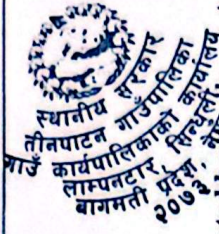 स्थानीय सरकार
तीनपाटन गाउँपालिका
गाउँ कार्यपालिकाको कार्यालय
लाम्पनटार, सिन्धुली,
बागमती प्रदेश,
२०७३